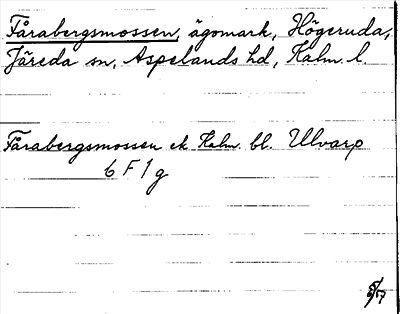 Fårabergsmossen, ägomark, Högeruda,
Järeda sn, Aspelands hd, Kalm. l.
Fårabergsmossen ek Kalm. bl. Ulvarp
6 F 1 g